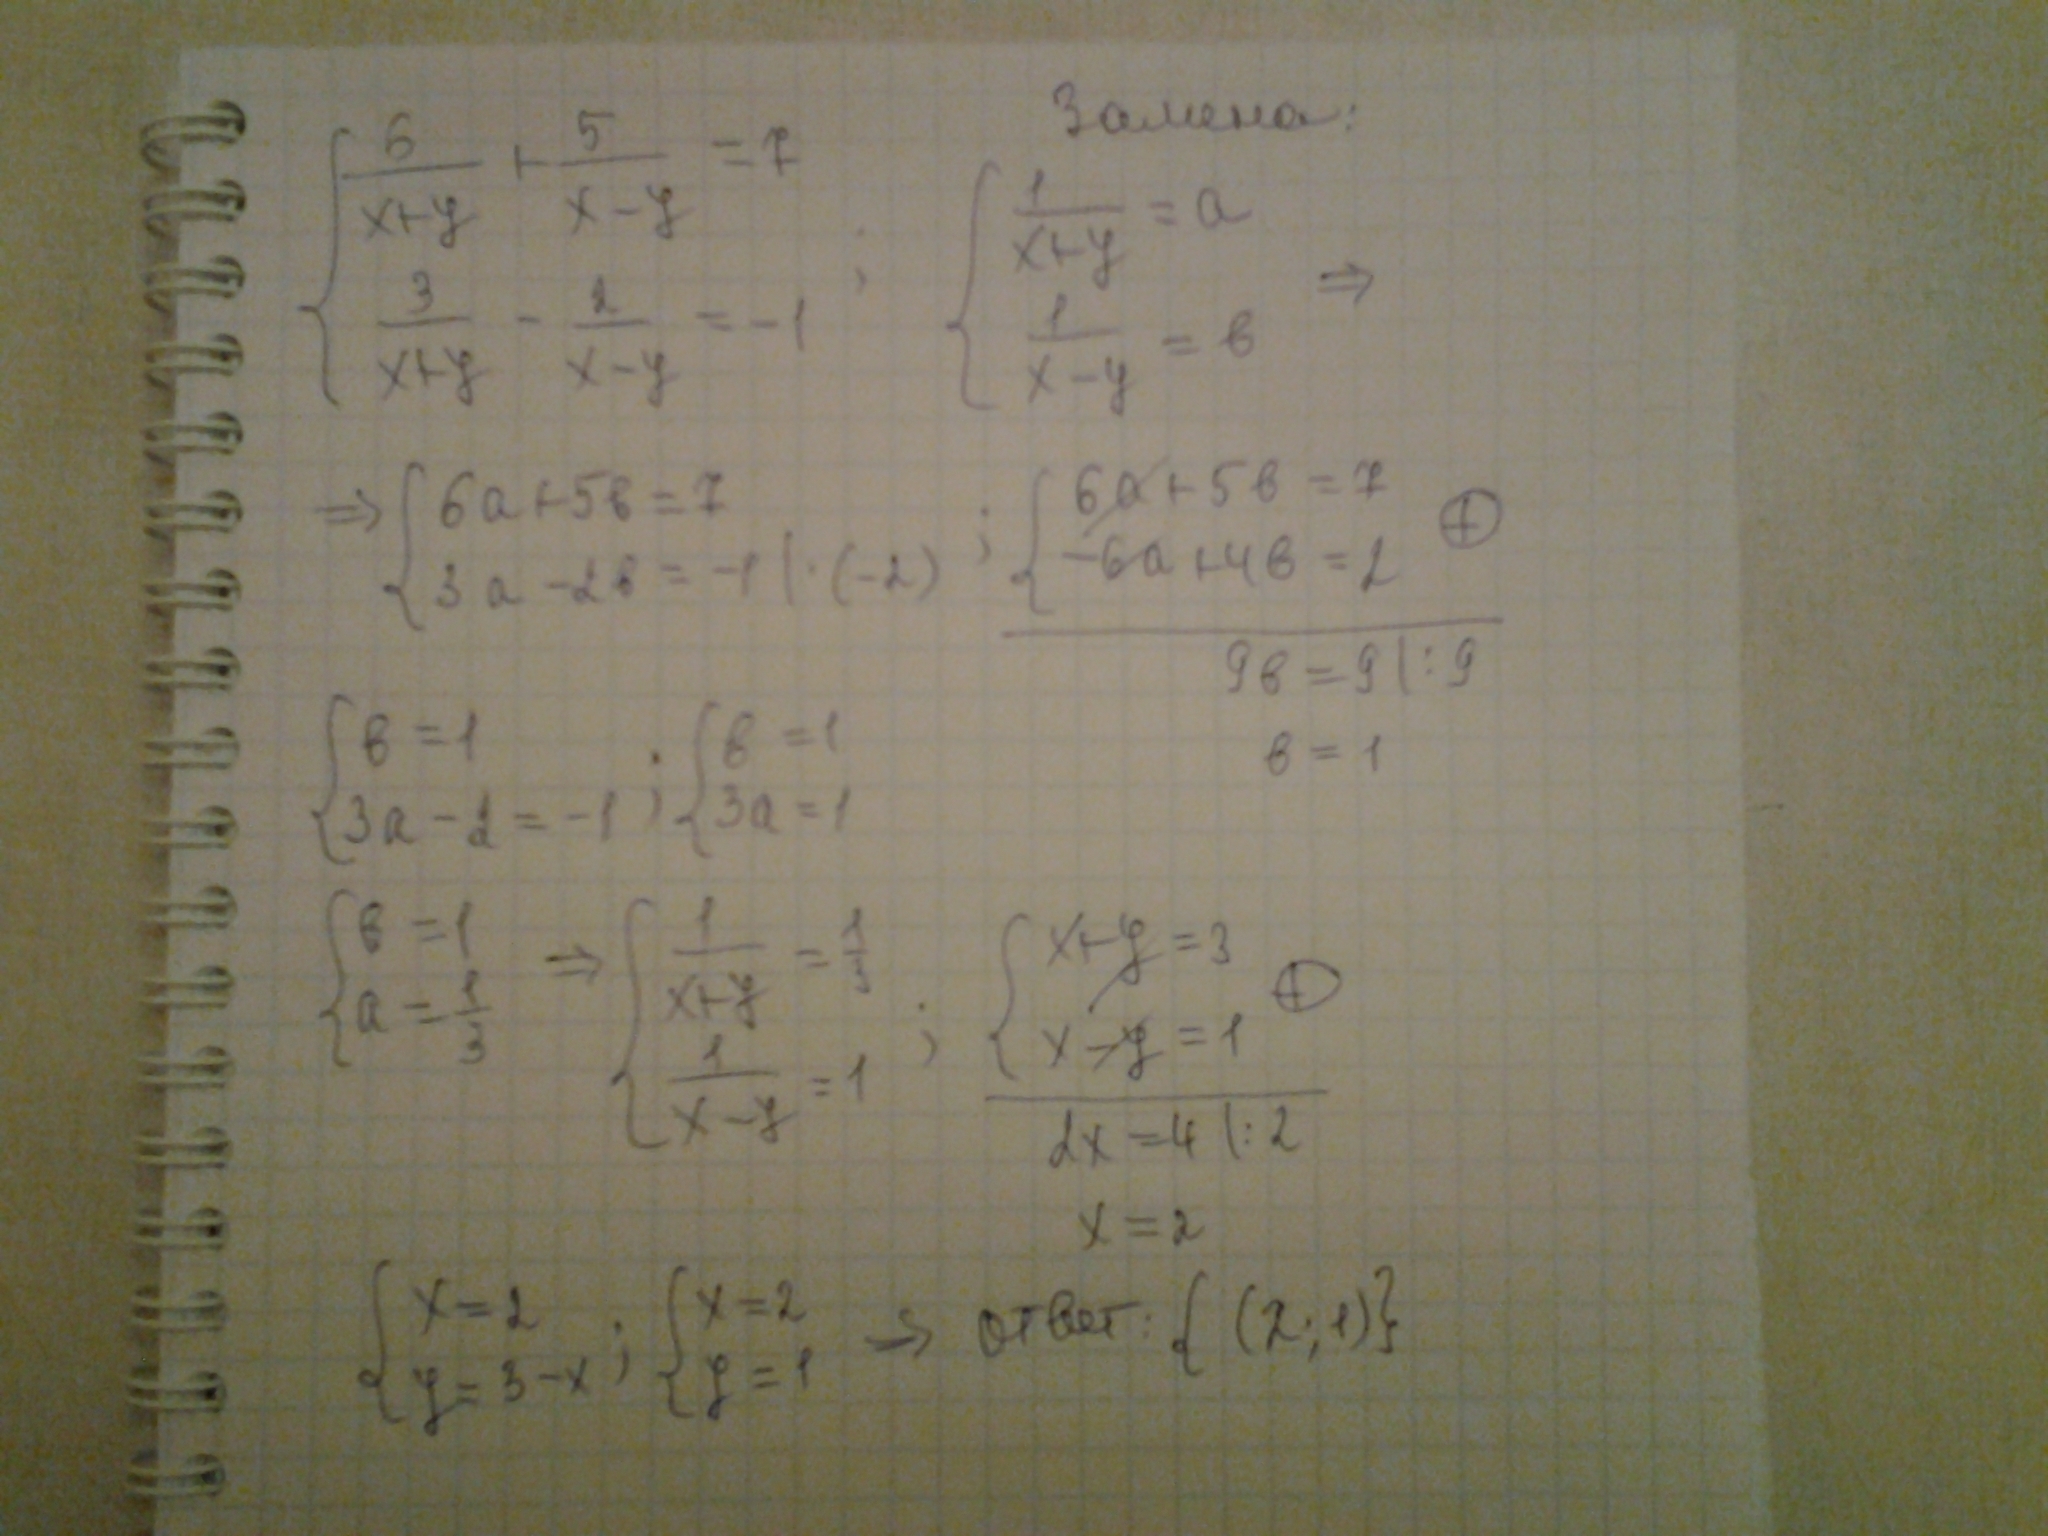 { 6/(x+y) + 5/(x-y) = 7
3/(x+y) - 2/(x-y) = -1 ;
Замена:
{ 1/(x+y) = a
1/(x-y) = в ⇒
⇒ { 6a+5в=7
3a-2в=-1 |·(-2) ;
{ 6a+5в=7
-6a+4в=2 ⊕
9в=9 |:9
в=1
{ в=1
3a-2=-1 ;
{ в=1
3a=1
{ в=1
a=1/3 ⇒
{ 1/(x+y) = 1/3
1/(x-y) = 1 ;
{ x+y=3
x-y=1 ⊕
2x=4 |:2
x=2
{ x=2
y=3-x ;
{ x=2
y=1 → ответ: {(2;1)}